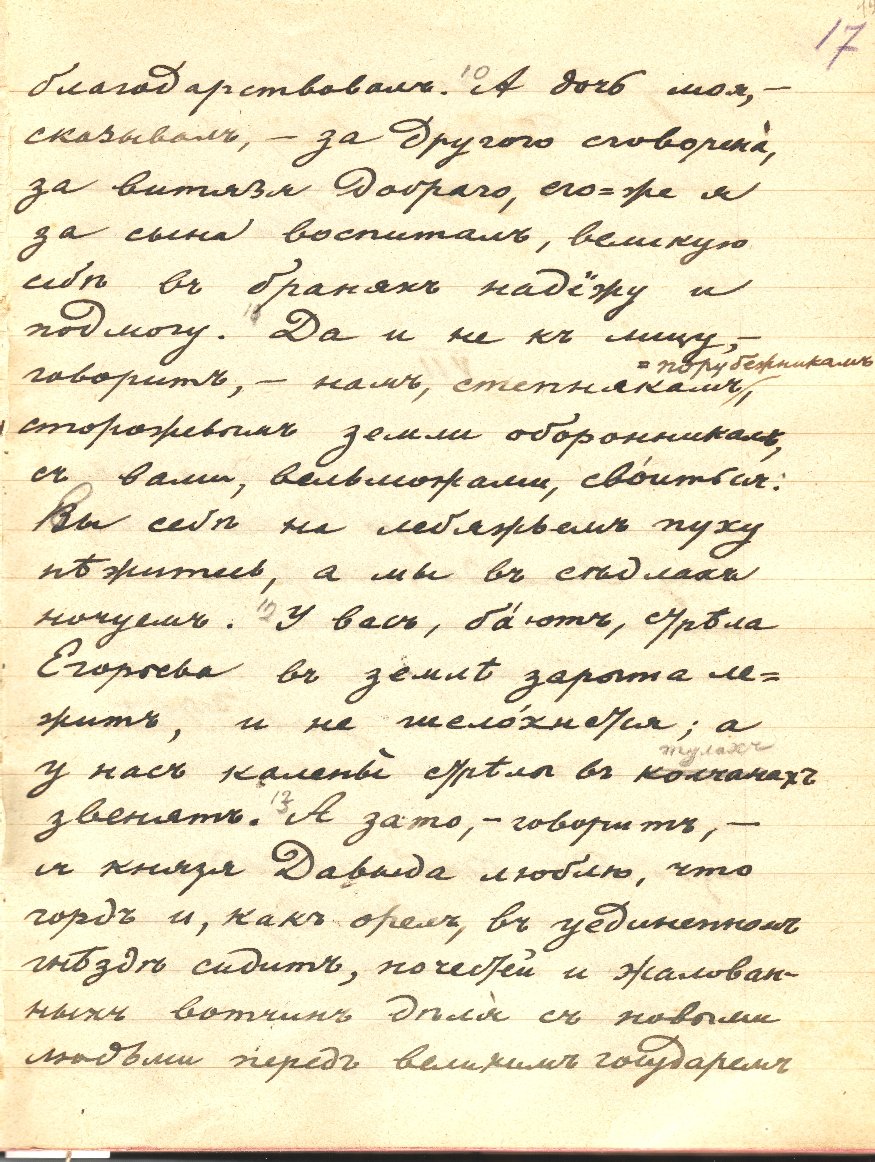 17
благодарствовалъ. 10 А дочь моя,—
сказывалъ,— за другого сговорена̀,
за витязя добраго, его=же я
за сына воспиталъ, великую
себѣ въ браняхъ надёжу и
подмогу. 11 Да и не къ лицу,—
=порубежникамъ
говоритъ,— намъ, степнякамъ,
сторожевымъ земли оборонникамъ,
съ вами, вельможами, сво́иться:
Вы себѣ на лебяжьемъ пуху
нѣжитесь, а мы въ сѣдлахъ
ночуемъ. 12 У васъ, ба́ютъ, стрѣла
Егорьева въ землѣ зарыта ле=
житъ, и не шело́хнется; а
тула́хъ
у насъ калены̀ стрѣлы въ колчанахъ
звенятъ. 13 А зато,— говоритъ,—
я князя Давыда люблю, что
гордъ и, какъ орелъ, въ уединенномъ
гнѣздѣ сидитъ, почестей и жалован-
ныхъ вотчинъ дѣля̀ съ новыми
людьми передъ великимъ государемъ